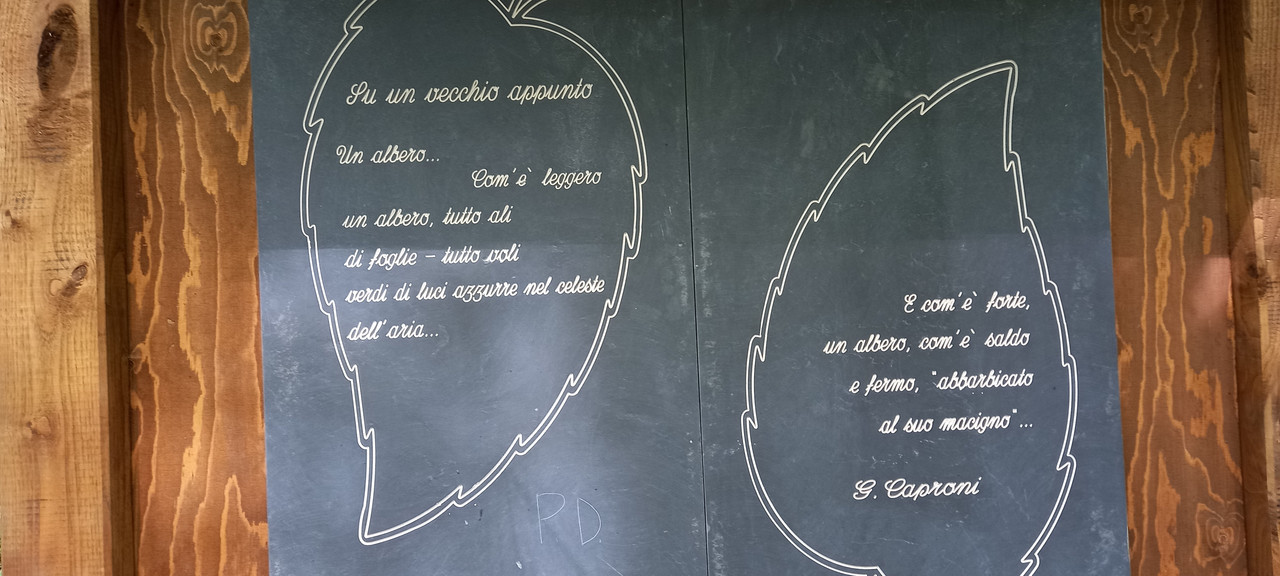 Su un vecchio appunto
Un albero...
Com'è leggero
un albero, tutto ali
di foglie – tutto voli
verdi di luci azzurre nel celeste
dell'aria...
E com'è forte,
un albero, com'è saldo
e fermo, "abbarbicato
al suo macigno"...
G. Caproni
PD